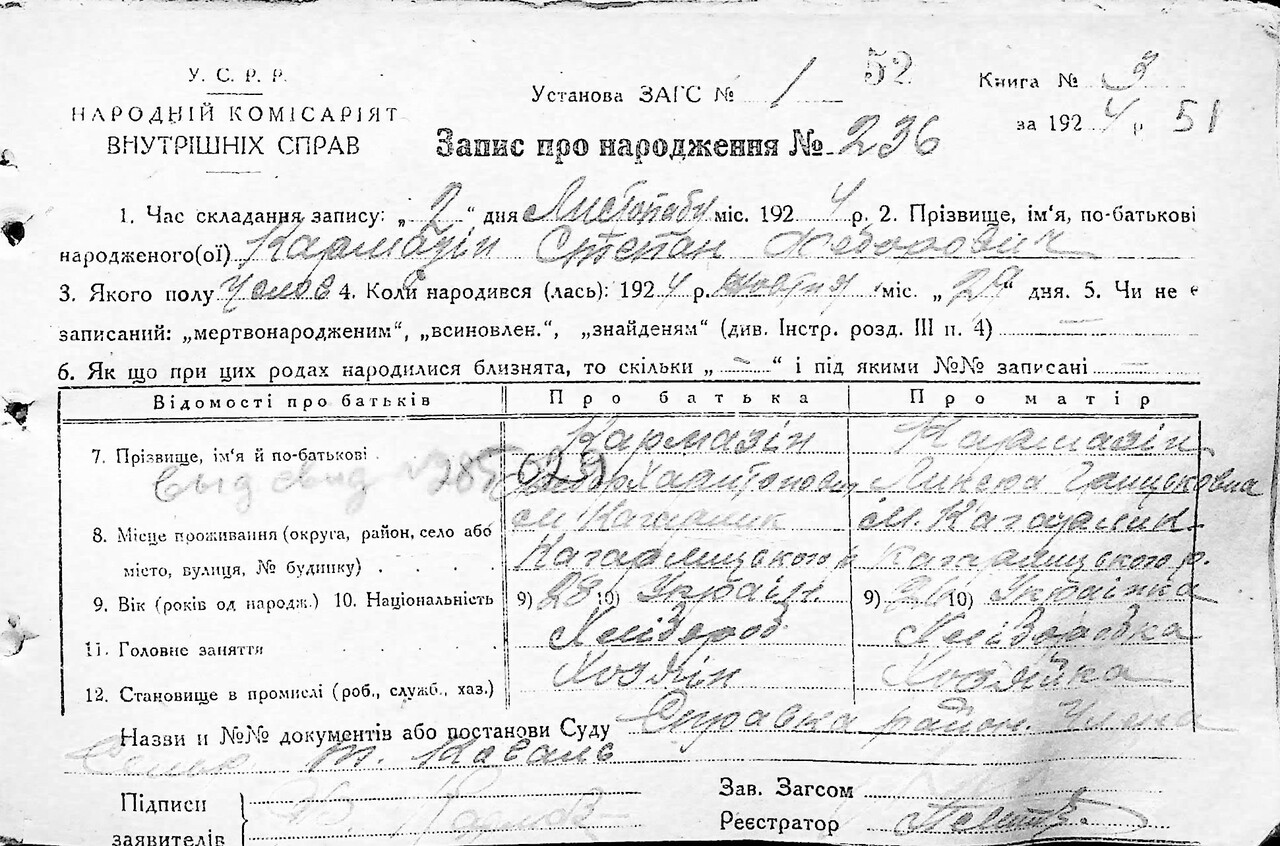 У. С. Р. Р.
НАРОДНІЙ КОМІСАРІЯТ
ВНУТРІШНІХ СПРАВ
Установа ЗАГС № 1
52
Книга № 3
за 1924 р
51
Запис про народження № 236
1. Час складання запису: „2“ дня Листопаду міс. 1924 р. 2. Прізвище, ім'я, по-батькові
народженого(ої) Кармазін Степан Федорович
3. Якого полу Челов 4. Коли народився (лась): 1924 р. жовтня міс. „29“ дня. 5. Чи не є
записаний: „мертвонародженим“, „всиновлен.“, „знайденям“ (див. Інстр. розд. III п. 4)
6. Як що при цих родах народилися близнята, то скільки „ — “ і під якими №№ записані —
Відомості про батьків Про батька Про матір
7. Прізвище, ім'я й по-батькові Кармазін Кармазін
Выд свид № 285029 Харитонович Грицьковна
8. Місце проживання (округа, район, село або м. Кагарлик м. Кагарлик
місто, вулиця, № будинку) Кагарлицького р Кагарлицького р.
9. Вік (років од народж.) 10. Національність 9) 28 10) Украін. 9) 10) Украінка
11. Головне заняття Хлібороб Хліборобка
12. Становище в промислі (роб., служб., хаз.) Хозяін Хозяйка
Назви и №№ документів або постанови Суду Справка район. Члена
т. Коваль
Підписи
заявителів
Зав. Загсом
Реєстратор